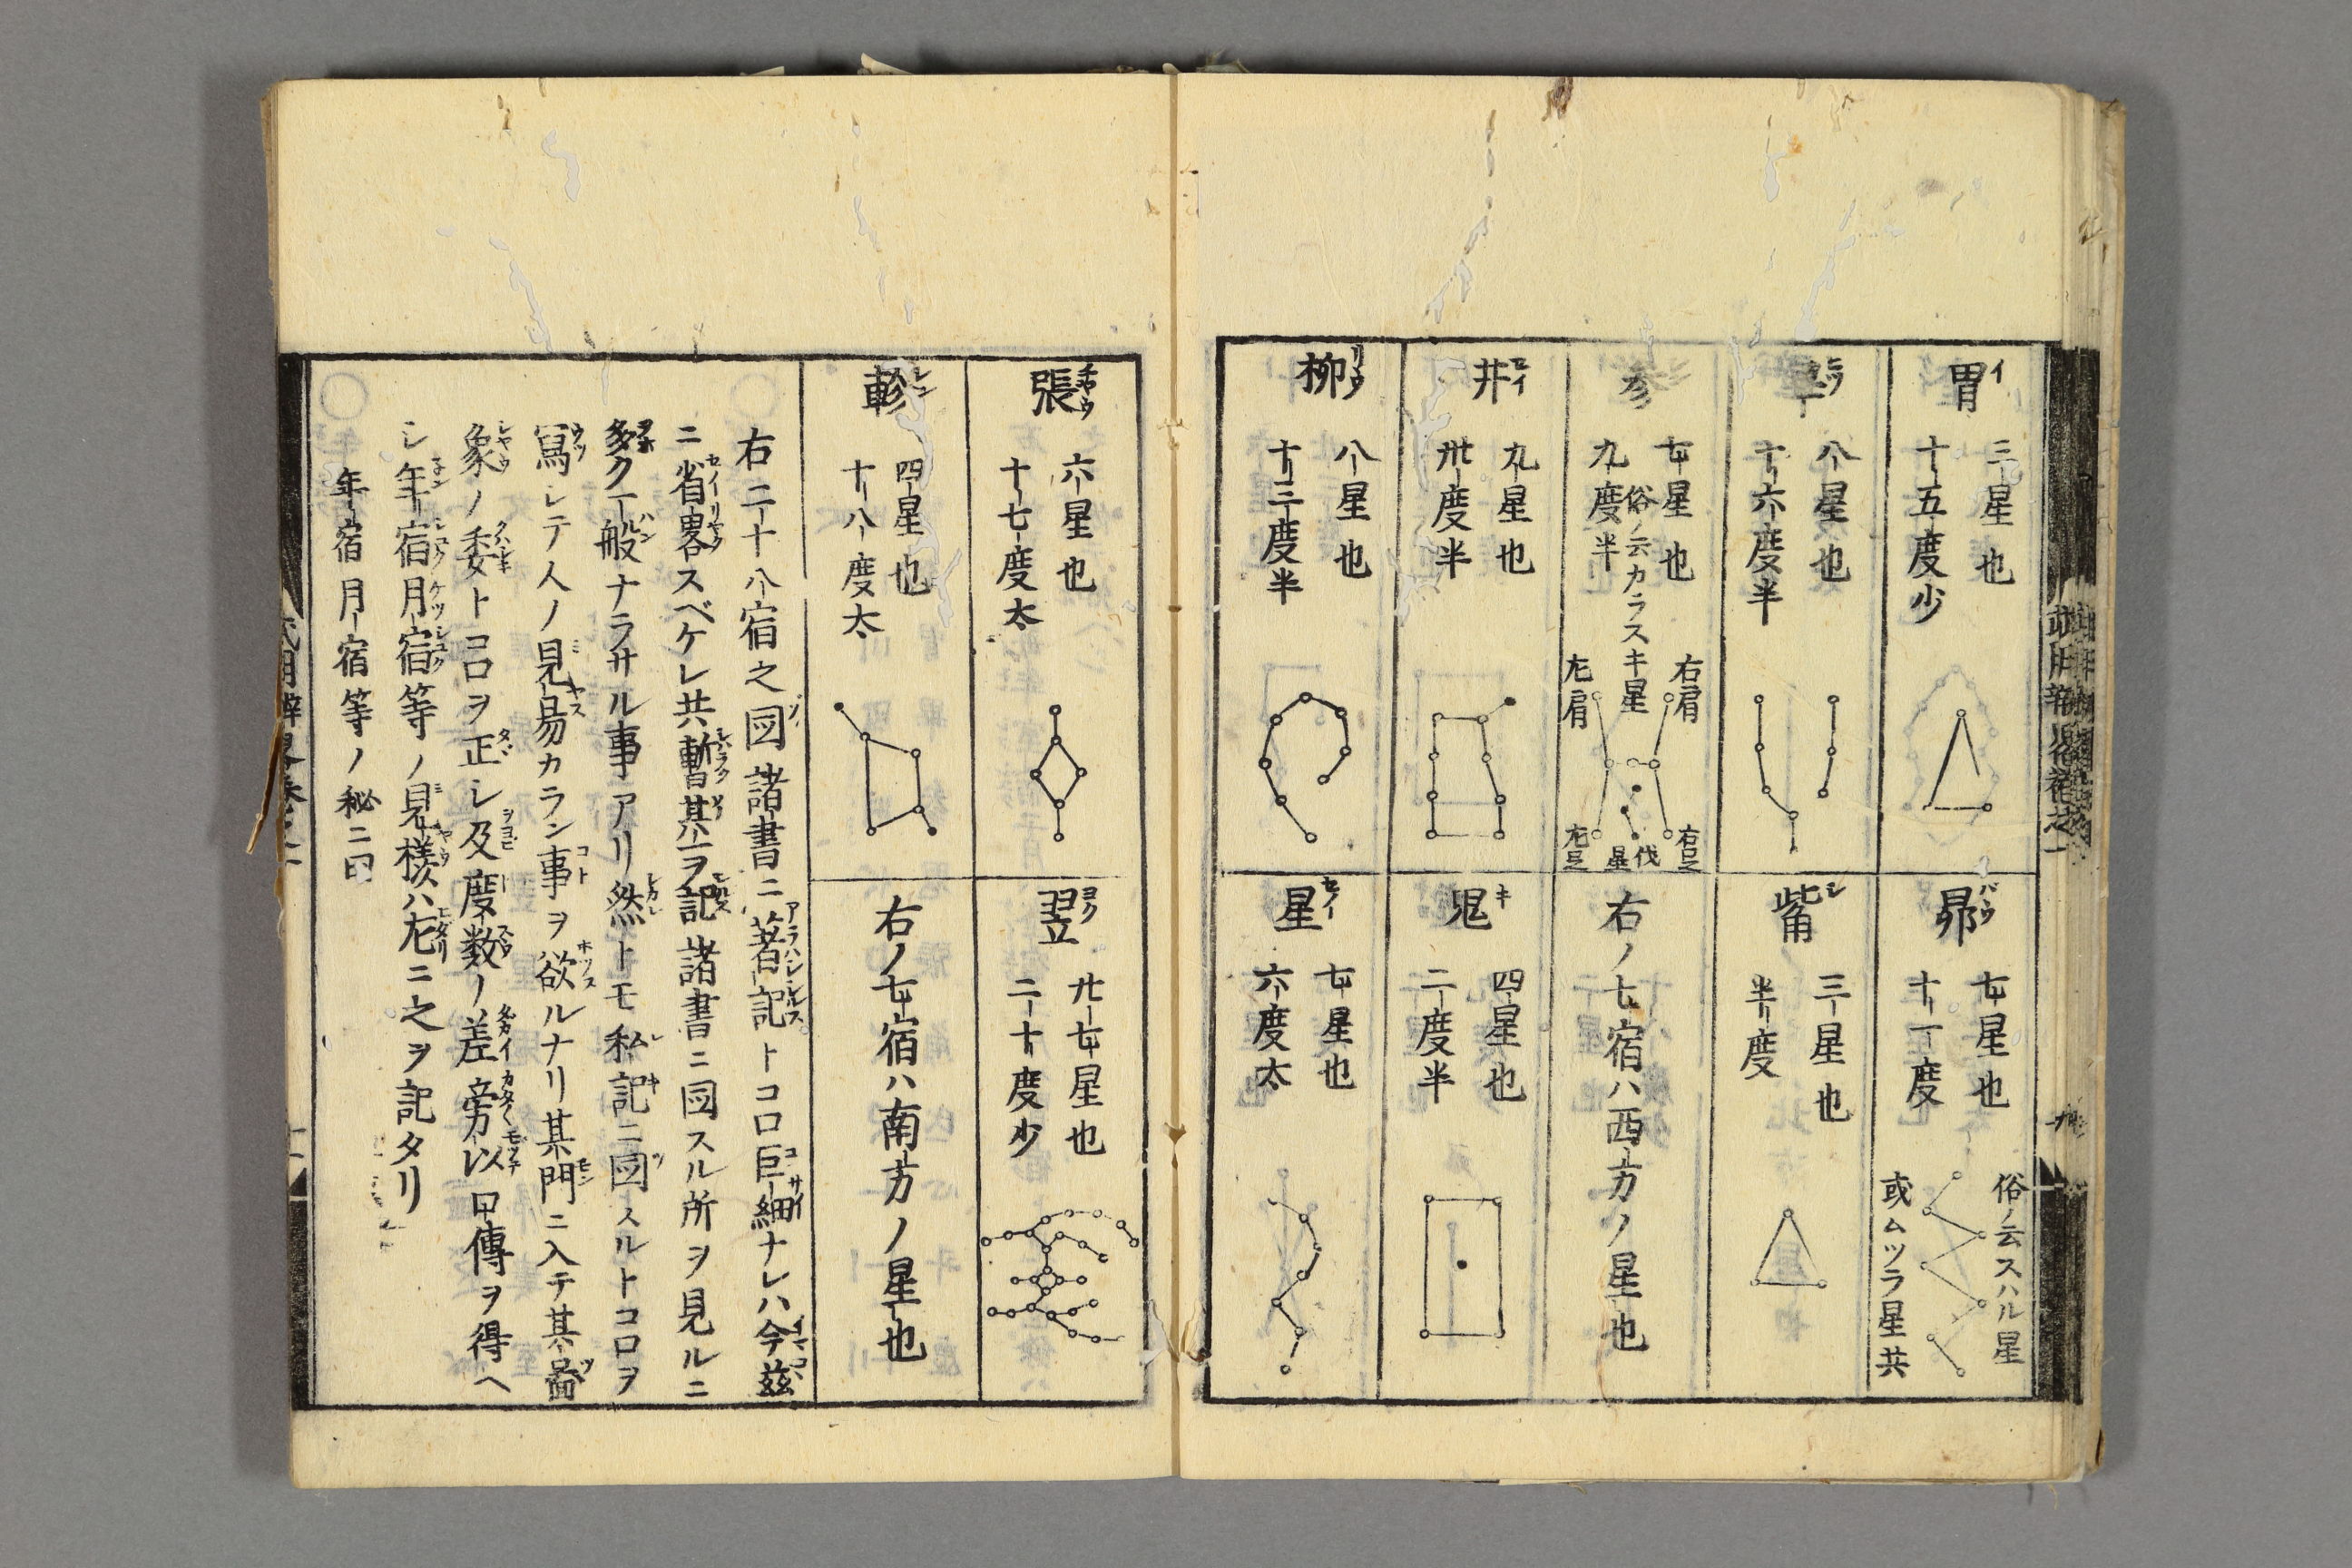 胃イ
三星也
十五度少
昴バウ
七星也
十一度
俗ノ云スハル星
或ムツラ星共
畢ヒツ
八星也
十六度半
觜シ
三星也
半度
参
七星也
九度半
俗ノ云カラスキ星
右肩
左肩
右足
左足
伐星
右ノ七宿ハ西方ノ星也
井セイ
九星也
卅度半
鬼キ
四星也
二度半
柳リウ
八星也
十三度半
星セイ
七星也
六度太
張チヤウ
六星也
十七度太
翌ヨク
廿七星也
二十度少
軫シン
四星也
十八度太
右ノ七宿ハ南方ノ星也
右二十八宿之図諸書ニ著記トコロ巨細ナレハ今茲
ニ省畧スベケレ共暫其一ヲ記諸書ニ図スル所ヲ見ルニ
多ク一般ナラサル事アリ然トモ私記ニ図スルトコロヲ
寫シテ人ノ見易カラン事ヲ欲ルナリ其門ニ入テ其啚
象ノ委トコロヲ正シ及度数ノ差旁以口傳ヲ得ヘ
シ年宿月宿等ノ見樣ハ左ニ之ヲ記タリ
年宿月宿等ノ秘ニ曰